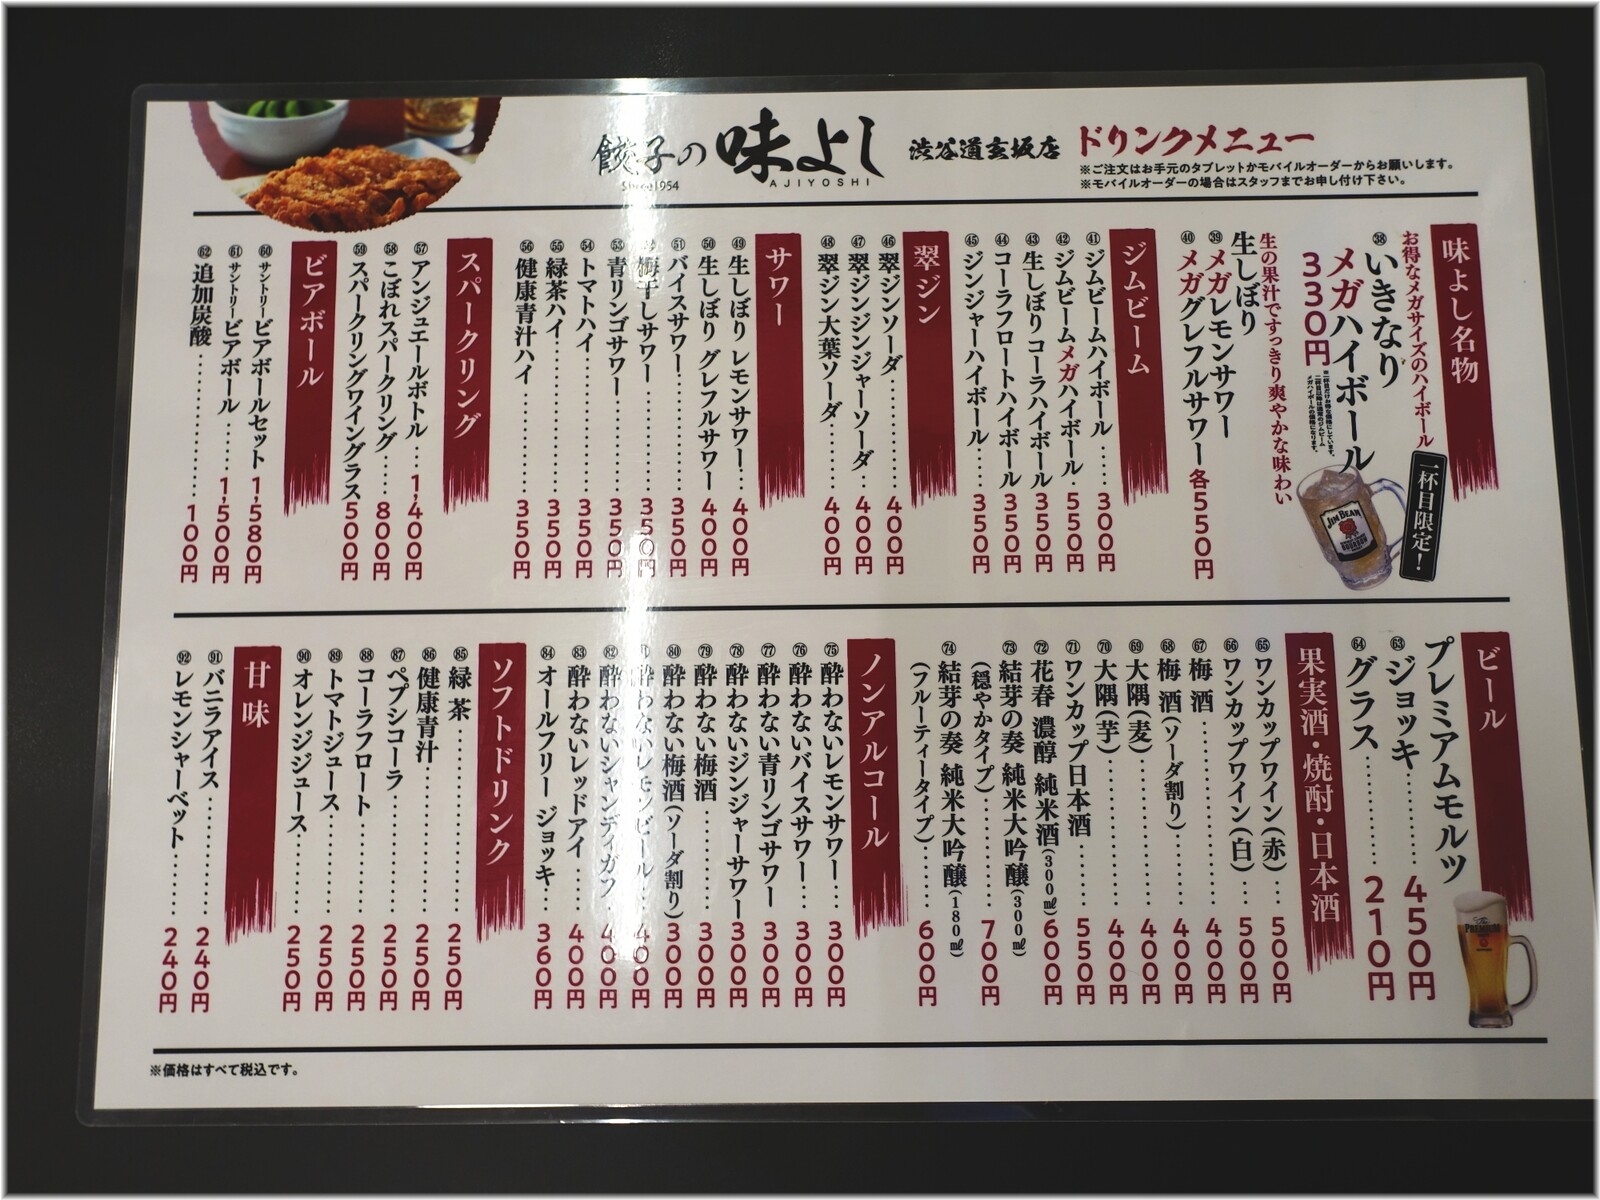 餃子の味よし
Since1954
AJIYOSHI
渋谷道玄坂店
ドリンクメニュー
※ご注文はお手元のタブレットかモバイルオーダーからお願いします。
※モバイルオーダーの場合はスタッフまでお申し付け下さい。
味よし名物
お得なメガサイズのハイボール
㊳いきなり
メガハイボール
330円
一杯目限定！
JIM BEAM
BOURBON
生の果汁ですっきり爽やかな味わい
生しぼり
㊴メガレモンサワー
㊵メガグレフルサワー 各550円
ジムビーム
㊶ジムビームハイボール……300円
㊷ジムビームメガハイボール…550円
㊸生しぼりコーラハイボール 350円
㊹コーラフロートハイボール 350円
㊺ジンジャーハイボール……350円
翠ジン
㊻翠ジンソーダ……400円
㊼翠ジンジンジャーソーダ…400円
㊽翠ジン大葉ソーダ……400円
サワー
㊾生しぼり レモンサワー…400円
㊿生しぼり グレフルサワー 400円
51バイスサワー……350円
梅干しサワー……350円
53青リンゴサワー……350円
54トマトハイ……350円
55緑茶ハイ……350円
56健康青汁ハイ……350円
スパークリング
57アンジュエールボトル…1,400円
58こぼれスパークリング……800円
59スパークリングワイングラス 500円
ビアボール
60サントリービアボールセット 1,580円
61サントリービアボール……1,500円
62追加炭酸……100円
ビール
プレミアムモルツ
63ジョッキ……450円
64グラス……210円
PREMIUM
果実酒・焼酎・日本酒
65ワンカップワイン(赤)…500円
66ワンカップワイン(白)…500円
67梅酒……400円
68梅酒(ソーダ割り)……400円
69大隅(麦)……400円
70大隅(芋)……400円
71ワンカップ日本酒……550円
72花春 濃醇 純米酒(300㎖)600円
73結芽の奏 純米大吟醸(300㎖)
(穏やかタイプ)……700円
74結芽の奏 純米大吟醸(180㎖)
(フルーティータイプ)……600円
ノンアルコール
75酔わないレモンサワー…300円
76酔わないバイスサワー…300円
77酔わない青リンゴサワー 300円
78酔わないジンジャーサワー 300円
79酔わない梅酒……300円
80酔わない梅酒(ソーダ割り)300円
酔わないレモンビール…400円
82酔わないシャンディガフ…400円
83酔わないレッドアイ……400円
84オールフリー ジョッキ…360円
ソフトドリンク
85緑茶……250円
86健康青汁……250円
87ペプシコーラ……250円
88コーラフロート……250円
89トマトジュース……250円
90オレンジジュース……250円
甘味
91バニラアイス……240円
92レモンシャーベット……240円
※価格はすべて税込です。